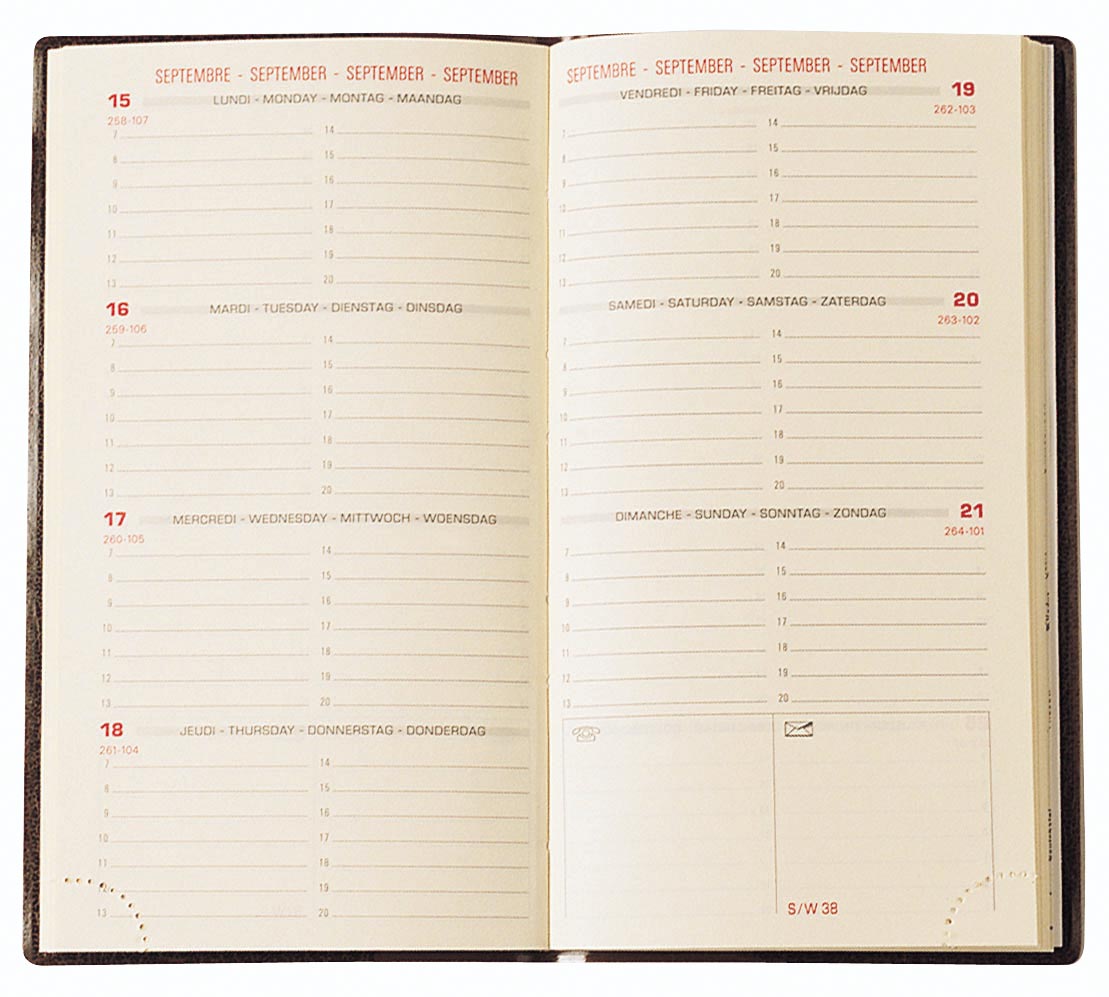 SEPTEMBRE - SEPTEMBER - SEPTEMBER - SEPTEMBER
15 LUNDI - MONDAY - MONTAG - MAANDAG
258-107
7 14
8 15
9 16
10 17
11 18
12 19
13 20
16 MARDI - TUESDAY - DIENSTAG - DINSDAG
259-106
7 14
8 15
9 16
10 17
11 18
12 19
13 20
17 MERCREDI - WEDNESDAY - MITTWOCH - WOENSDAG
260-105
7 14
8 15
9 16
10 17
11 18
12 19
13 20
18 JEUDI - THURSDAY - DONNERSTAG - DONDERDAG
261-104
7 14
8 15
9 16
10 17
11 18
12 19
13 20
SEPTEMBRE - SEPTEMBER - SEPTEMBER - SEPTEMBER
VENDREDI - FRIDAY - FREITAG - VRIJDAG 19
262-103
7 14
8 15
9 16
10 17
11 18
12 19
13 20
SAMEDI - SATURDAY - SAMSTAG - ZATERDAG 20
263-102
7 14
8 15
9 16
10 17
11 18
12 19
13 20
DIMANCHE - SUNDAY - SONNTAG - ZONDAG 21
264-101
7 14
8 15
9 16
10 17
11 18
12 19
13 20
S/W 38